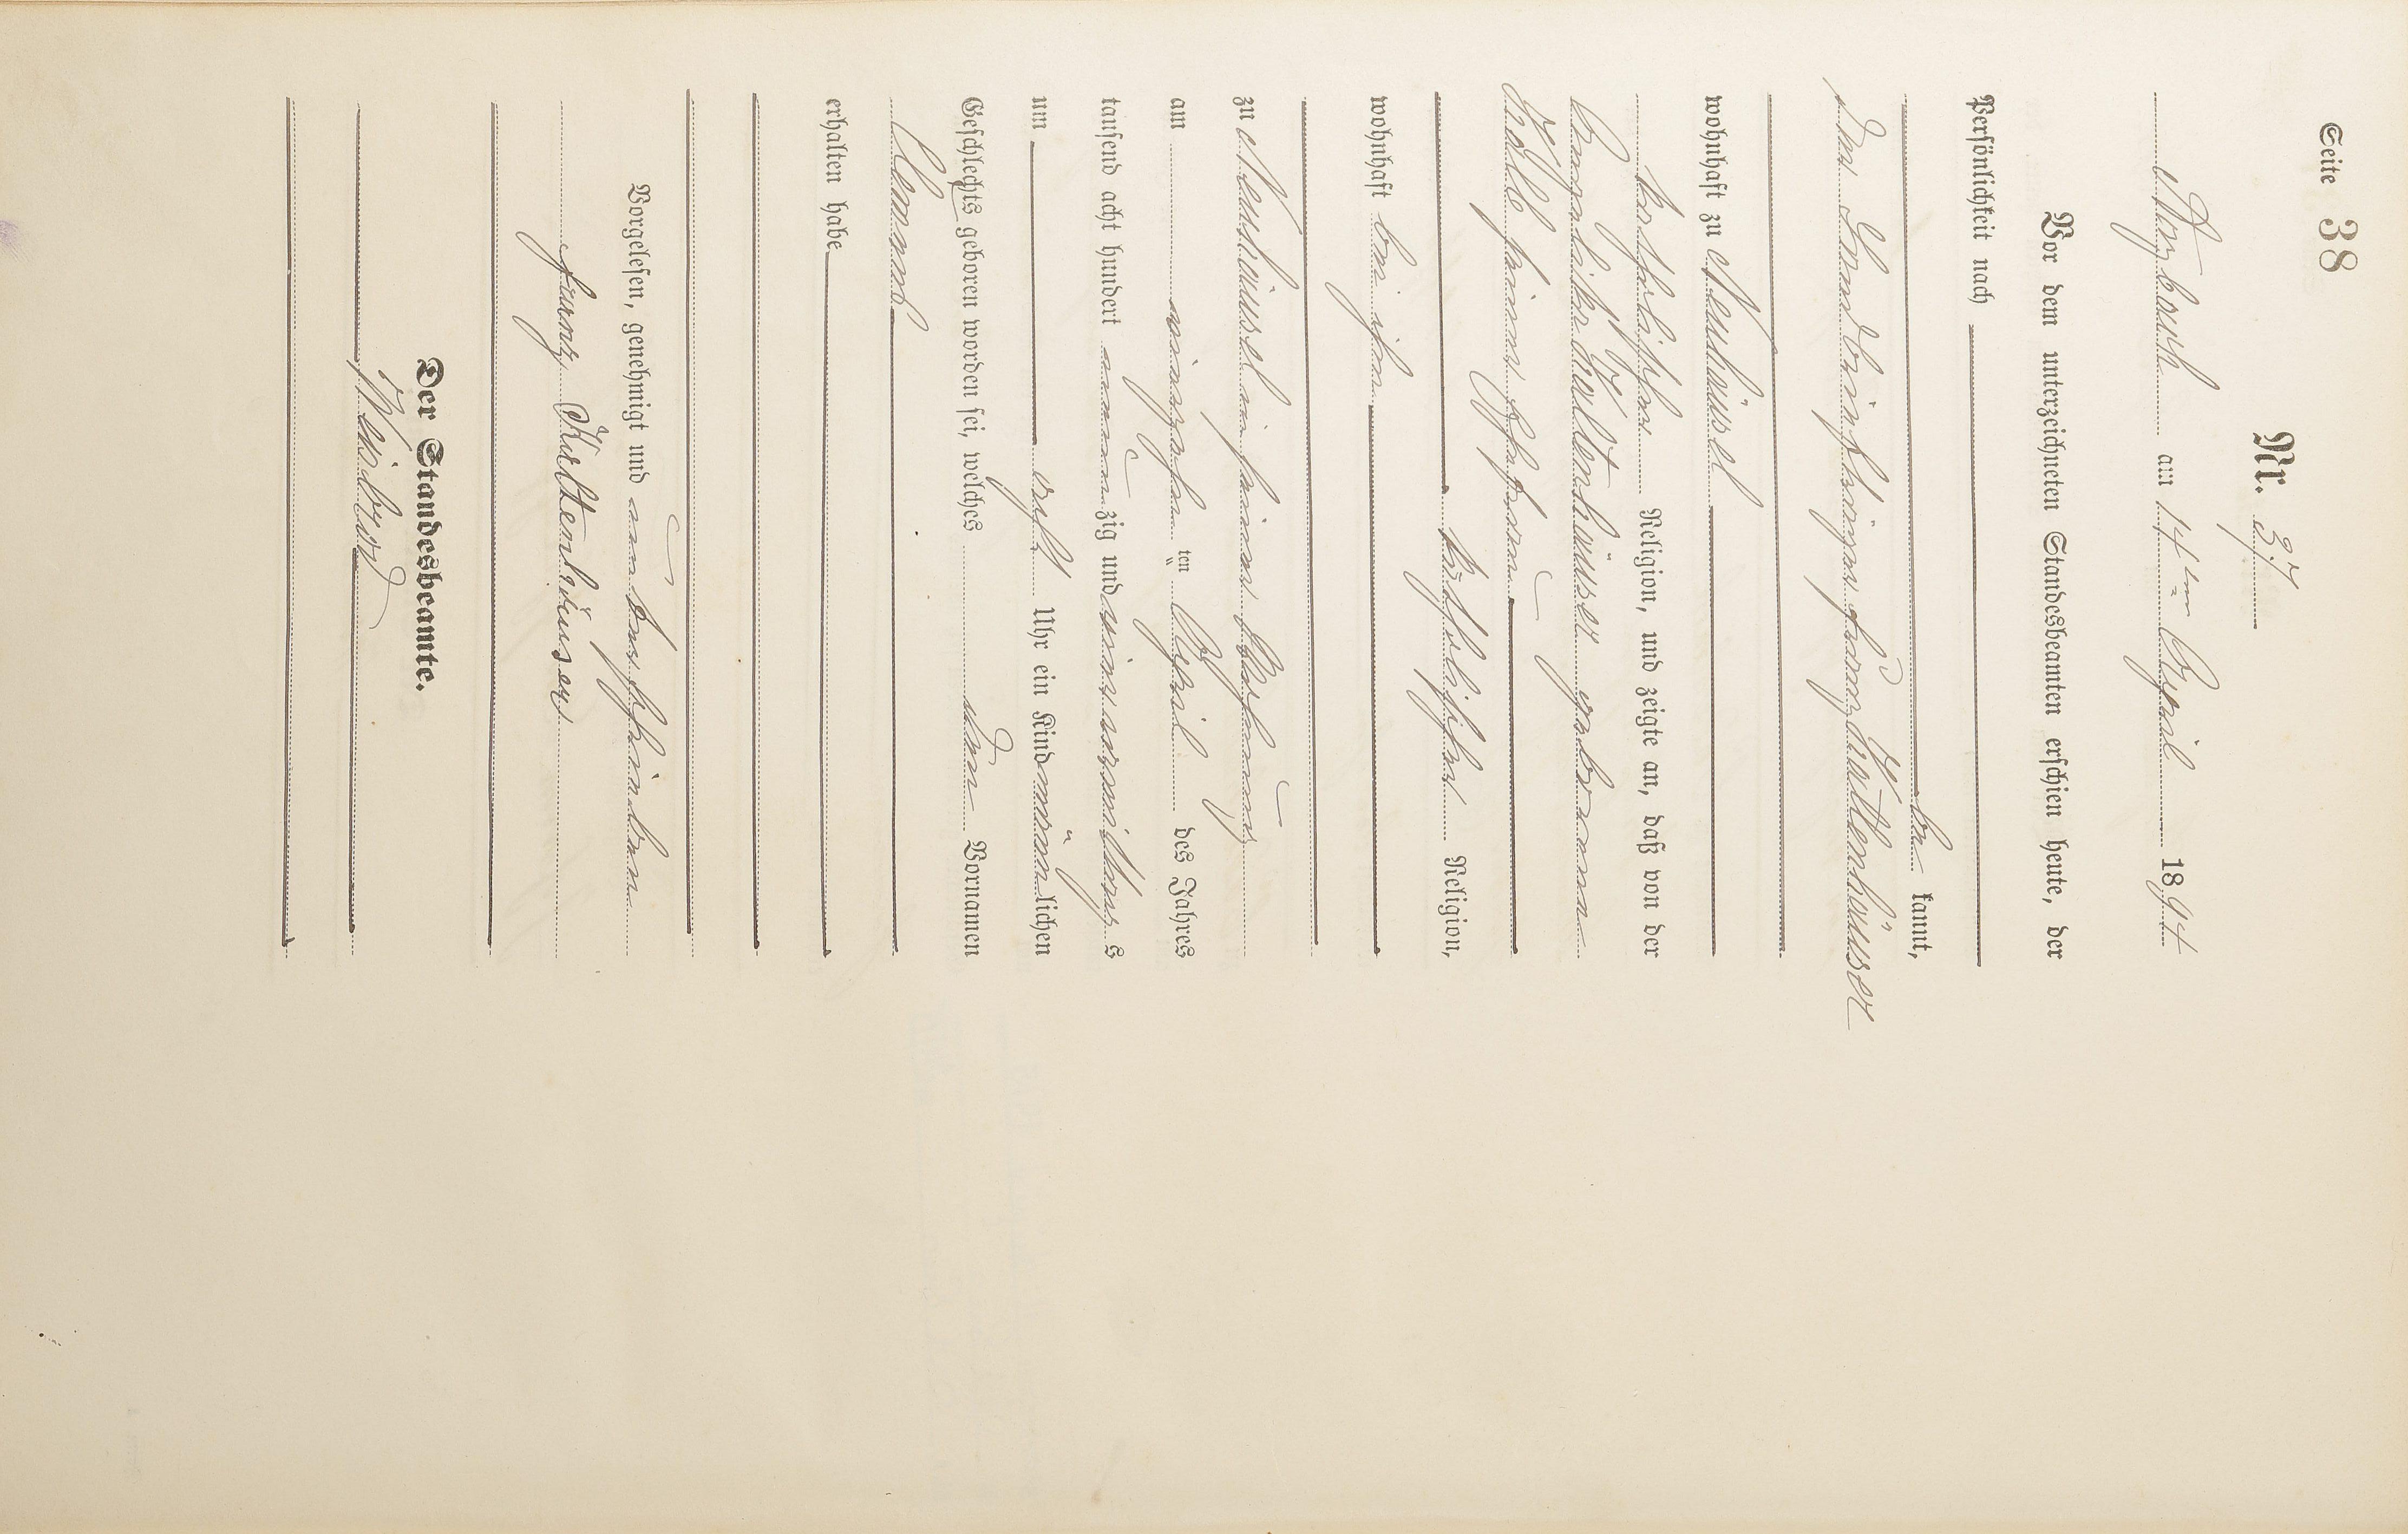 Seite 38
Nr. 37
Arzbach am 14ten April 1894
Vor dem unterzeichneten Standesbeamten erschien heute, der
Persönlichkeit nach
be kannt,
Der Landbriefträger Franz Kaltenhäuser
wohnhaft zu Neuhäusel
katholischer Religion, und zeigte an, daß von der
Kaltenhäuser geborenen
seiner Ehefrau
katholischer Religion,
wohnhaft bei ihm
zu Neuhäusel in seiner Wohnung
am vierzehn ten April des Jahres
tausend acht hundert neun zig und vier vormittags
um elf Uhr ein Kind männlichen
Geschlechts geboren worden sei, welches den Vornamen
erhalten habe
Vorgelesen, genehmigt und unterschrieben
Franz Kaltenhäuser
Der Standesbeamte.